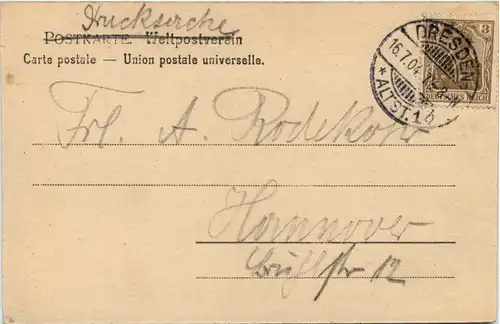 Drucksache
POSTKARTE. Weltpostverein
Carte postale — Union postale universelle.
DRESDEN
16.7.04.
* ALTST. 16
3
Frl. A. Rodekohr
Hannover
Brühlstr 12